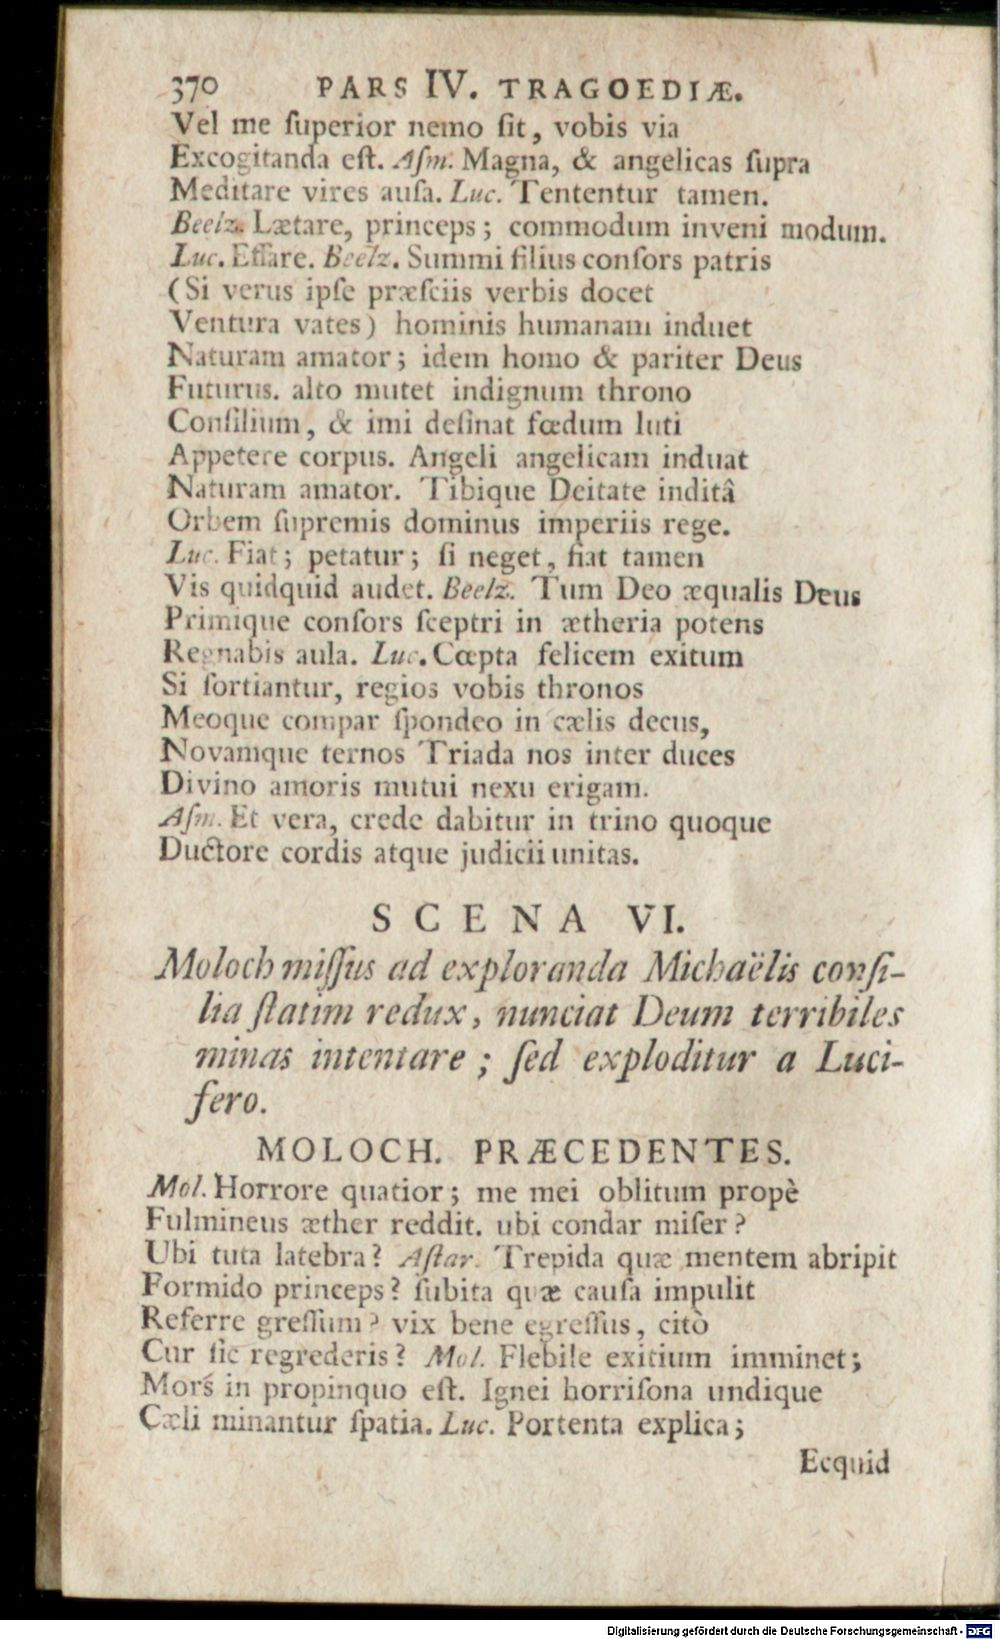 370 PARS IV. TRAGOEDIÆ.
Vel me ſuperior nemo ſit, vobis via
Excogitanda eſt. Aſm. Magna, & angelicas ſupra
Meditare vires auſa. Luc. Tententur tamen.
Beelz. Lætare, princeps; commodum inveni modum.
Luc. Effare. Beelz. Summi filius conſors patris
(Si verus ipſe præſciis verbis docet
Ventura vates) hominis humanam induet
Naturam amator; idem homo & pariter Deus
Futurus. alto mutet indignum throno
Conſilium, & imi deſinat fœdum luti
Appetere corpus. Angeli angelicam induat
Naturam amator. Tibique Deitate inditâ
Orbem ſupremis dominus imperiis rege.
Luc. Fiat; petatur; ſi neget, fiat tamen
Vis quidquid audet. Beelz. Tum Deo æqualis Deus
Primique conſors ſceptri in ætheria potens
Regnabis aula. Luc. Cœpta felicem exitum
Si ſortiantur, regios vobis thronos
Meoque compar ſpondeo in cælis decus,
Novamque ternos Triada nos inter duces
Divino amoris mutui nexu erigam.
Aſm. Et vera, crede dabitur in trino quoque
Ductore cordis atque judicii unitas.
SCENA VI.
Moloch miſſus ad exploranda Michaëlis conſi-
lia ſtatim redux, nunciat Deum terribiles
minas intentare; ſed exploditur a Luci-
fero.
MOLOCH. PRÆCEDENTES.
Mol. Horrore quatior; me mei oblitum propè
Fulmineus æther reddit. ubi condar miſer?
Ubi tuta latebra? Aſtar. Trepida quæ mentem abripit
Formido princeps? ſubita quæ cauſa impulit
Referre greſſum? vix bene egreſſus, citò
Cur ſic regrederis? Mol. Flebile exitium imminet;
Mors in propinquo eſt. Ignei horriſona undique
Cæli minantur ſpatia. Luc. Portenta explica;
Ecquid
Digitalisierung gefördert durch die Deutsche Forschungsgemeinschaft - DFG